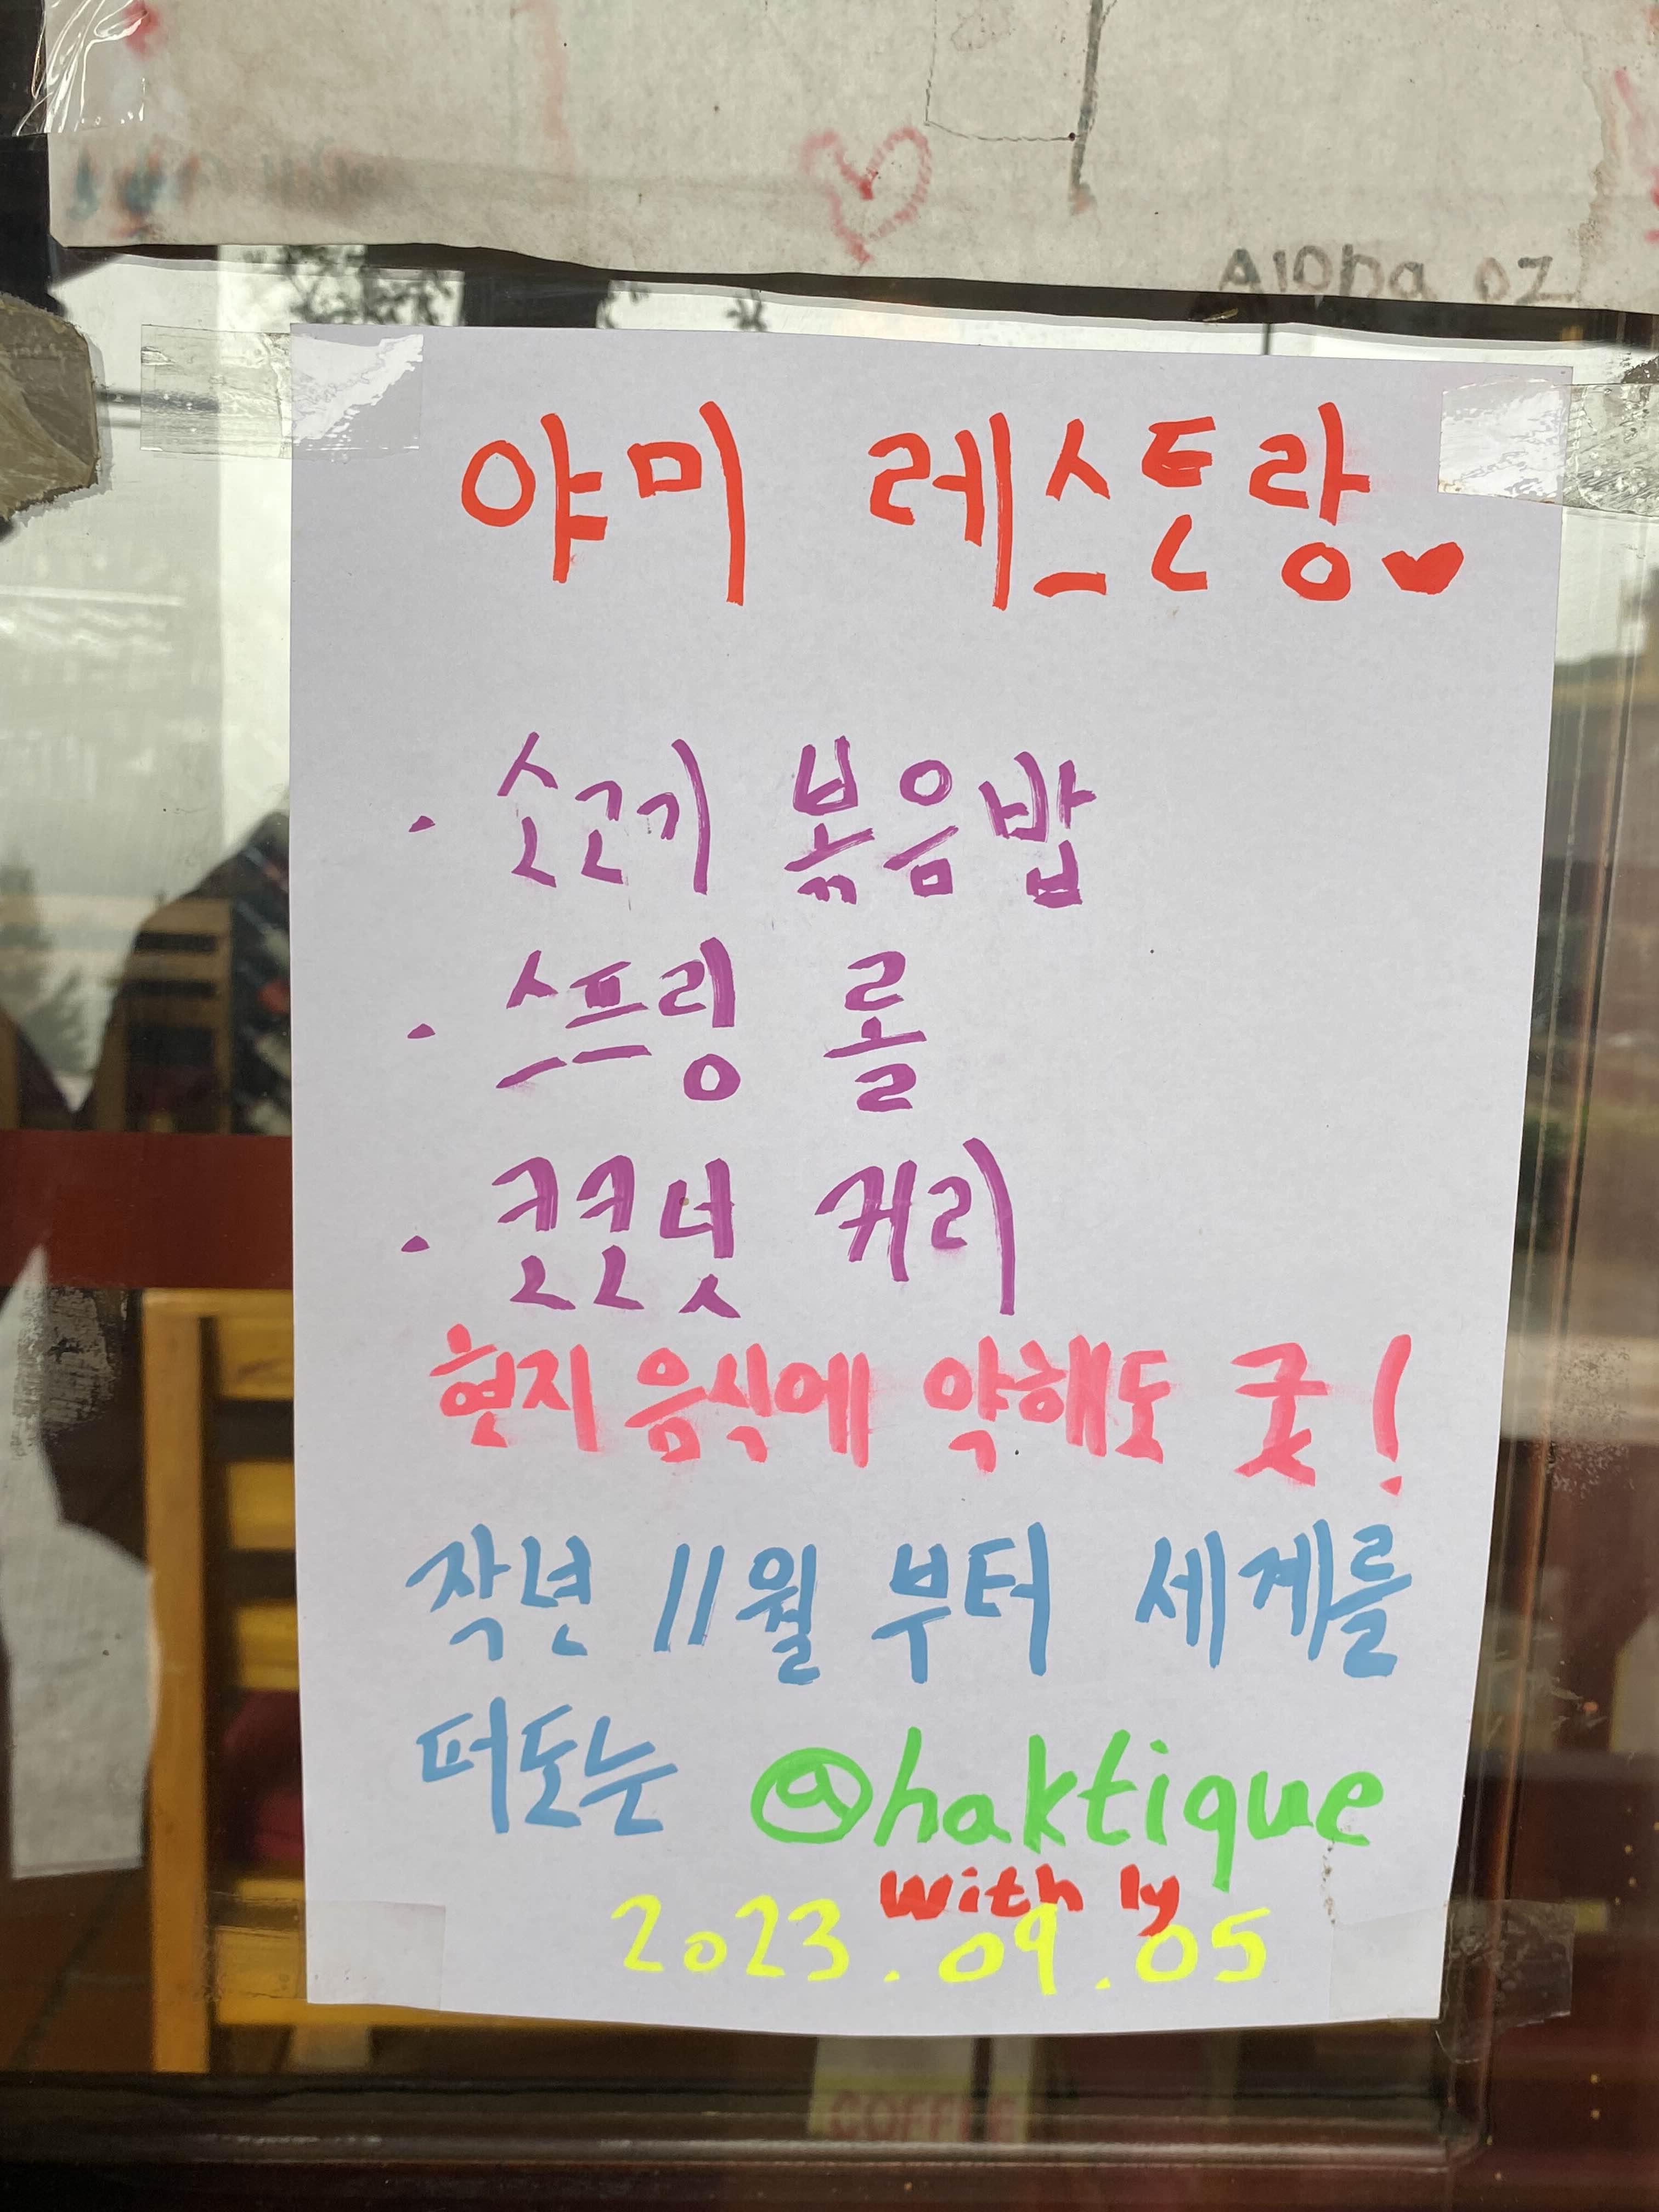 Aloha oz
야미 레스토랑♥
· 소고기 볶음밥
· 스프링 롤
· 코코넛 커리
현지 음식에 약해도 굿!
작년 11월 부터 세계를
떠도는 @haktique
with ly
2023.09.05
COFFEE